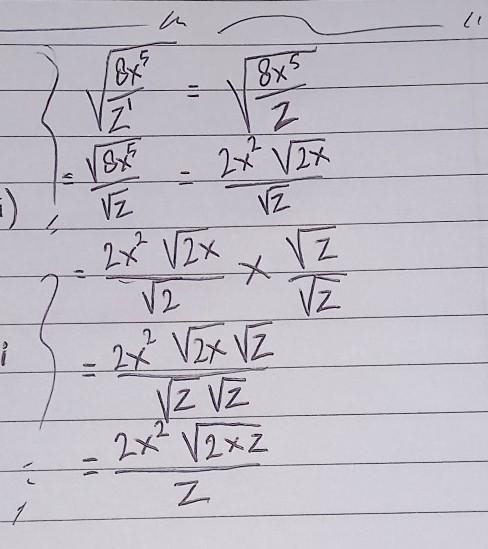 √(8x⁵/z¹) = √(8x⁵/z)
= √(8x⁵)/√z = 2x² √(2x)/√z
i)
= 2x² √(2x)/√2 × √z/√z
= 2x² √(2x) √z/√z √z
i
= 2x² √(2xz)/z